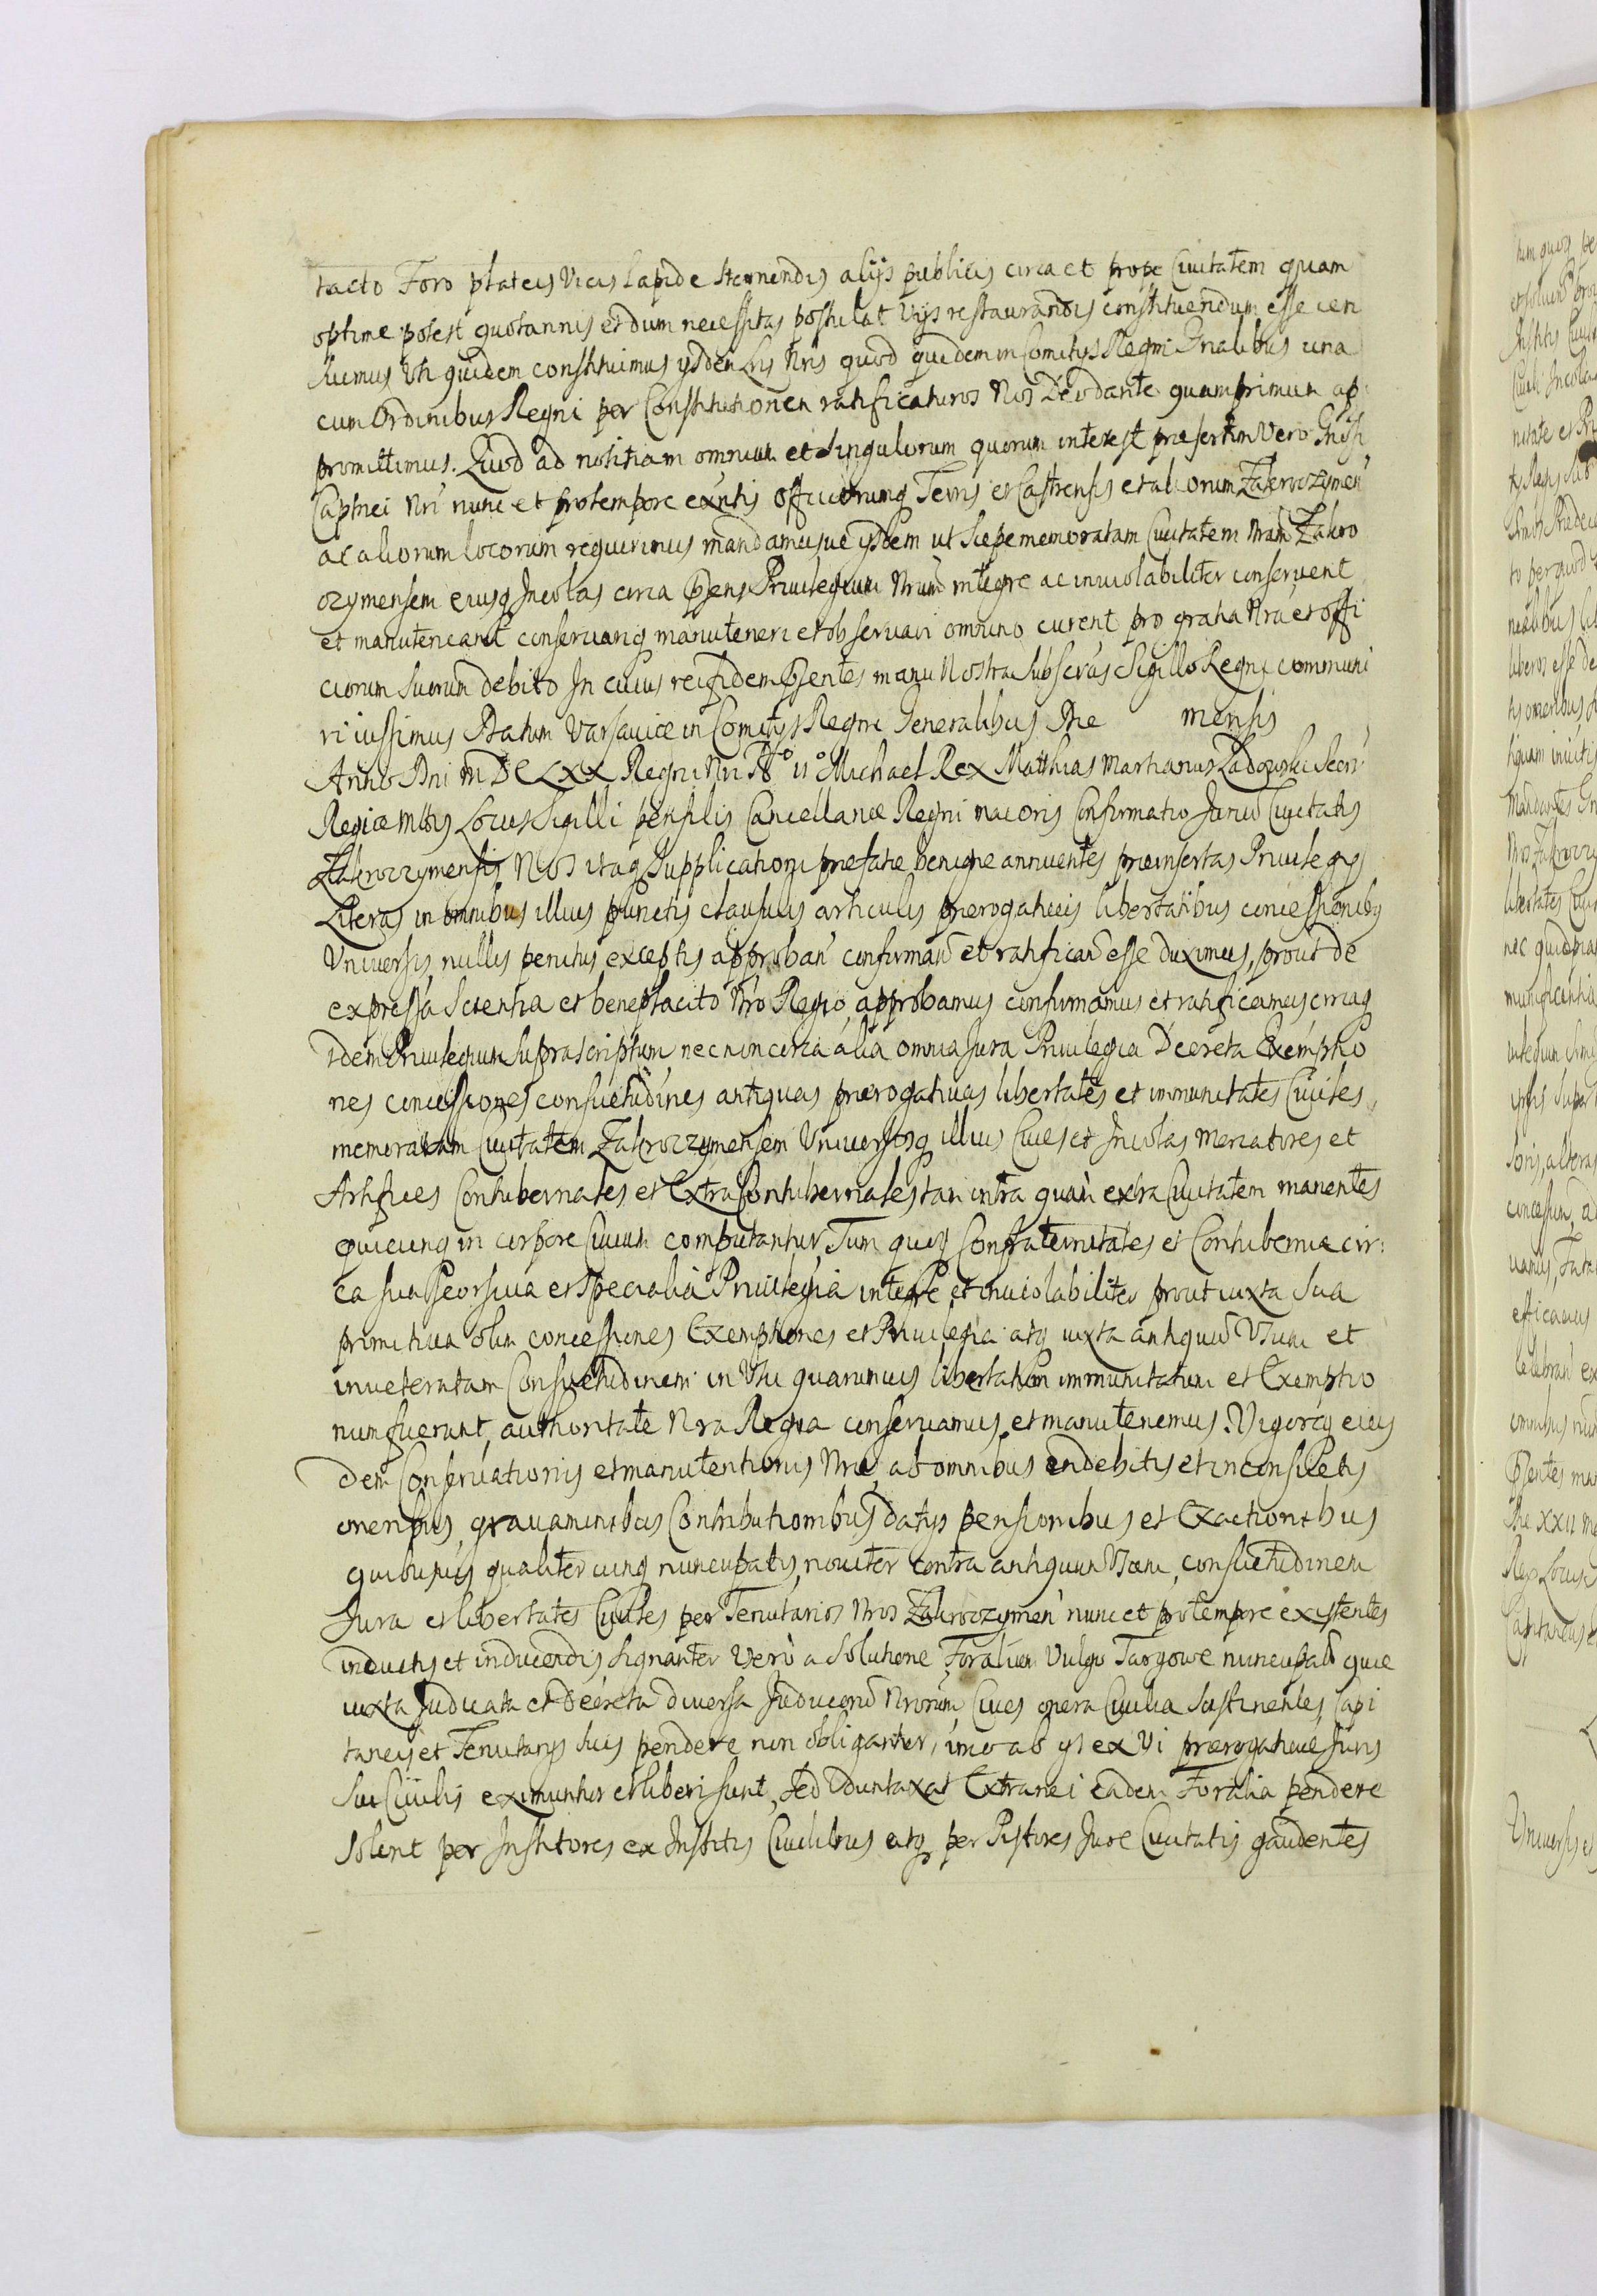 tacto Foro plateis Vicis Lapide sternendis alijs publicis circa et prope Civitatem quam
optime potest quotannis et dum necessitas postulat Vijs restaurandis constituendum esse cen
suimus Uti quidem constituimus ysdem Lris Nris quod quidem in Comitijs Regni Gnalibus una
cum Ordinibus Regni per Constitutionem ratificaturos Nos Deo dante quamprimum ap
promittimus. Quod ad notitiam omnium et singulorum quorum interest præsertim Vero Gnosi
Captnei Nri nunc et protempore exntis Officiorumq Terris et Castrensis et aliorum Zakroczymen
ac aliorum locorum requirimus mandamusque ysdem ut sæpe memoratam Civitatem Nram Zakro
czymensem eiusq Incolas circa Psens Privilegium Nrum integre ac inviolabiliter conservent
et manuteneant conservariq manuteneri et observari omnino curent pro gratia Nra et offi
ciorum suorum debito In cuius rei fidem Psentes manu Nostra subscras Sigillo Regni communi
ri iussimus Datum Varsaviæ in Comitijs Regni Generalibus Die mensis
Anno Dni MDCLXX Regni Nri Ao IIo Michael Rex Matthias Martianus Ladowski Secrr
Regiæ Mttis Locus Sigilli pensilis Cancellariæ Regni maioris Confirmatio Jurium Civitatis
Zakroczymensis Nos itaq Supplicationi prefatæ benigne annuentes præinsertas Privilegij
Literas in omnibus illius punctis clausulis articulis prærogativis libertatibus concessionibq
Universis nullis penitus exceptis approban confirman et ratifican esse duximus, prout de
expressa Scientia et beneplacito Nro Regio, approbamus confirmamus et ratificamus circaq
idem Privilegium supra scriptum, nec non circa alia omnia Jura Privilegia Decreta Exemptio
nes concessiones consuetudines antiquas prærogativas libertates et immunitates Civiles
memoratam Civitatem Zakroczymensem Universosq illius Cives et Incolas Mercatores et
Artifices Contubernales et Extra Contubernales tam intra quam extra Civitatem manentes
quicunq in corpore Civium computantur, Tum quoq Confraternitates et Contubernia cir:
ca sua Seorsiva et Specialia Privilegia integre et inviolabiliter prout iuxta Sua
primitiva olim concessiones Exemptiones et Privilegia atq iuxta antiquum Usum et
inveteratam Consuetudinem in Usu quarumvis libertatum immunitatum et Exemptio
num fuerunt, authoritate Nra Regia conservamus et manutenemus. Vigoreq eius
dem Conservationis et manutentionis Nræ, ab omnibus indebitis et inconsuetis
oneribus, gravaminibus Contributionibus datijs pensionibus et Exactionibus
quibusvis qualitercunq nuncupatis, noviter contra antiquum Usum, consuetudinem
Jura et libertates Civiles per Tenutarios Nros Zakroczymen nunc et protempore existentes
inductis et inducendis signanter Vero a solutione Foralium Vulgo Targowe nuncupat quæ
iuxta Judicata et Decreta diversa Judiciorum Nrorum, Cives onera Civilia sustinentes, Capi
taneis et Tenutarijs suis pendere non obligantur, imo ab ijs ex Vi prærogativæ Juris
sui Civilis eximuntur et liberi sunt, sed duntaxat Extranei eadem Foralia pendere
solent per Institores ex Institis Civilibus atq per Pistores Jure Civitatis gaudentes